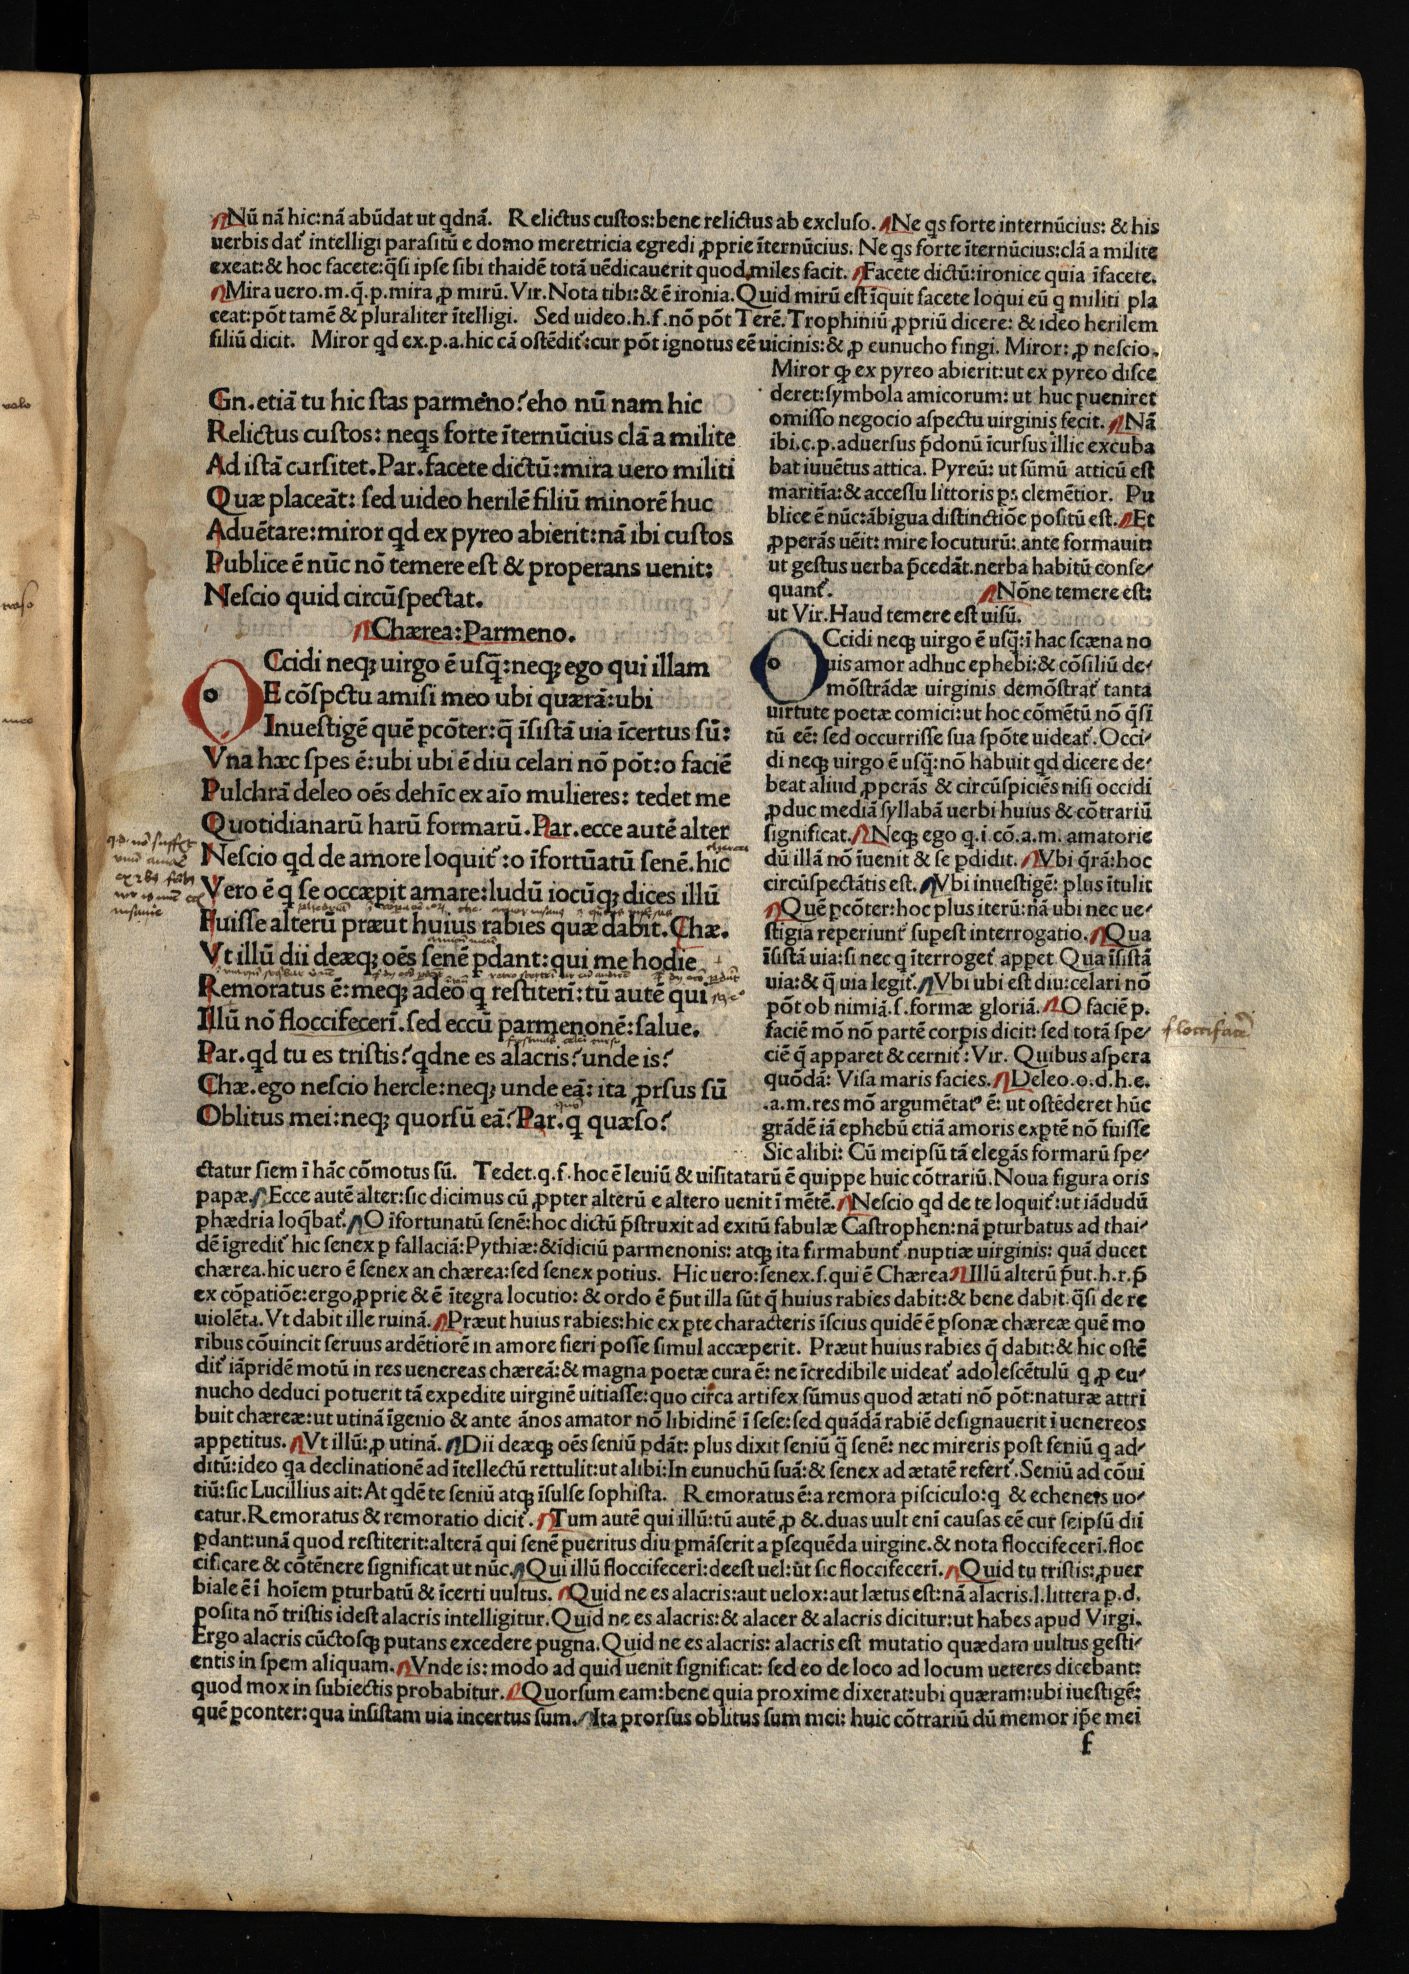 Nū nā hic:nā abūdat ut qdnā. Relictus custos:bene relictus ab excluso. Ne qs forte internūcius: & his
uerbis dat᷑ intelligi parasitū e domo meretricia egredi ꝓprie īternūcius. Ne qs forte īternūcius:clā a milite
exeat:& hoc facete:q̄si ipse sibi thaidē totā uēdicauerit quod miles facit. Facete dictū:ironice quia īfacete.
Mira uero.m.q̄.p.mira ꝓ mirū. Vir. Nota tibi:& ē ironia. Quid mirū est īquit facete loqui eū q militi pla
ceat:pōt tamē & pluraliter ītelligi. Sed uideo.h.f.nō pōt Terē. Trophiniū ꝓpriū dicere: & ideo herilem
filiū dicit. Miror qd ex.p.a.hic cā ostēdit᷑:cur pōt ignotus eē uicinis:& ꝓ eunucho fingi. Miror: ꝓ nescio.
Gn.etiā tu hic stas parmeno? eho nū nam hic
Relictus custos: neqs forte īternūcius clā a milite
Ad istā cursitet. Par. facete dictū:mira uero militi
Quæ placeāt: sed uideo herilē filiū minorē huc
Aduētare:miror qd ex pyreo abierit:nā ibi custos
Publice ē nūc nō temere est & properans uenit:
Nescio quid circūspectat.
Chærea: Parmeno.
O Ccidi neqꝫ uirgo ē usq̄:neqꝫ ego qui illam
E cōspctu amisi meo ubi quærā:ubi
Inuestigē quē ꝑcōter:q̄ īsistā uia īcertus sū:
Vna hæc spes ē:ubi ubi ē diu celari nō pōt:o faciē
Pulchrā deleo oēs dehīc ex aīo mulieres: tedet me
Quotidianarū harū formarū. Par. ecce autē alter
Nescio qd de amore loquit᷑:o īfortūatū senē. hic
Vero ē q se occæpit amare:ludū iocūqꝫ dices illū
Fuisse alterū præut huius rabies quæ dabit. Chæ.
Vt illū dii deæqꝫ oēs senē ꝑdant:qui me hodie
Remoratus ē:meqꝫ adeo q restiterī:tū autē qui
Illū nō floccifecerī.sed eccū parmenonē:salue.
Par.qd tu es tristis? qdne es alacris? unde is?
Chæ.ego nescio hercle:neqꝫ unde eā: ita ꝓrsus sū
Oblitus mei:neqꝫ quorsū eā? Par. q quæso?
Miror qꝫ ex pyreo abierit:ut ex pyreo disce
deret:symbola amicorum: ut huc ꝑueniret
omisso negocio aspectu uirginis fecit. Nā
ibi.c.p.aduersus p̄donū īcursus illic excuba
bat iuuētus attica. Pyreū: ut sūmū atticū est
maritīa:& accessu littoris ps clemētior. Pu
blice ē nūc:ābigua distinctiōe positū est. Et
ꝓperās uēit: mire locuturū: ante formauit:
ut gestus uerba p̄cedāt.nerba habitū conse-
quant᷑. Nōne temere est:
ut Vir. Haud temere est uisū.
O Ccidi neqꝫ uirgo ē usq̄:ī hac scæna no
uis amor adhuc ephebi:& cōsiliū de-
mōstrādæ uirginis demōstrat᷑ tanta
uirtute poetæ comici:ut hoc cōmētū nō q̄si
tū eē: sed occurrisse sua spōte uideat᷑. Occi-
di neqꝫ uirgo ē usq̄:nō habuit qd dicere de-
beat aliud ꝓperās & circūspiciēs nisi occidi
ꝓduc mediā syllabā uerbi huius & cōtrariū
significat. Neqꝫ ego q.i.cō.a.m. amatorie
dū illā nō īuenit & se ꝑdidit. Vbi q̄rā:hoc
circūspectātis est. Vbi inuestigē: plus ītulit
Quē ꝑcōter:hoc plus iterū:nā ubi nec ue-
stigia reperiunt᷑ suꝑest interrogatio. Qua
īsistā uia:si nec q īterroget᷑ apꝑet Qua īsistā
uia:& q̄ uia legit᷑. Vbi ubi est diu:celari nō
pōt ob nimiā.s.formæ gloriā. O faciē p.
faciē mō nō partē corꝑis dicit: sed totā spe-
ciē q̄ apparet & cernit᷑: Vir. Quibus aspera
quōdā: Visa maris facies. Deleo.o.d.h.e.
.a.m.res mō argumētat᷒ ē: ut ostēderet hūc
grādē iā ephebū etiā amoris exꝑtē nō fuisse
Sic alibi: Cū meipsū tā elegās formarū spe-
ctatur siem ī hāc cōmotus sū. Tedet.q.f.hoc ē leuiū & uisitatarū ē quippe huic cōtrariū. Noua figura oris
papæ. Ecce autē alter:sic dicimus cū ꝓpter alterū e altero uenit ī mētē. Nescio qd de te loquit᷑:ut iādudū
phædria loq̄bat᷑. O īfortunatū senē:hoc dictū p̄struxit ad exitū fabulæ Castrophen:nā ꝑturbatus ad thai-
dē īgredit᷑ hic senex ꝑ fallaciā: Pythiæ:& īdiciū parmenonis: atqꝫ ita firmabunt᷑ nuptiæ uirginis: quā ducet
chærea.hic uero ē senex an chærea:sed senex potius. Hic uero:senex.s.qui ē Chærea Illū alterū p̄ut.h.r.p̄
ex cōꝑatiōe:ergo ꝓprie & ē ītegra locutio: & ordo ē p̄ut illa sūt q̄ huius rabies dabit:& bene dabit: q̄si de re
uiolēta. Vt dabit ille ruinā. Præut huius rabies:hic ex ꝑte characteris īscius quidē ē ꝑsonæ chæreæ quē mo
ribus cōuincit seruus ardētiorē in amore fieri posse simul accæperit. Præut huius rabies q̄ dabit:& hic ostē
dit᷑ iāpridē motū in res uenereas chæreā:& magna poetæ cura ē: ne īcredibile uideat᷑ adolescētulū q ꝓ eu-
nucho deduci potuerit tā expedite uirginē uitiasse:quo circa artifex sūmus quod ætati nō pōt:naturæ attri
buit chæreæ:ut utinā īgenio & ante ānos amator nō libidinē ī sese:sed quādā rabiē designauerit ī uenereos
appetitus. Vt illū:ꝓ utinā. Dii deæqꝫ oēs seniū ꝑdāt: plus dixit seniū q̄ senē: nec mireris post seniū q ad-
ditū:ideo qa declinationē ad ītellectū rettulit:ut alibi:In eunuchū suā:& senex ad ætatē refert᷑. Seniū ad cōui
tiū:sic Lucillius ait: At qdē te seniū atqꝫ īsulse sophista. Remoratus ē:a remora pisciculo:q & echeneis uo-
catur. Remoratus & remoratio dicit᷑. Tum autē qui illū:tū autē ꝓ &.duas uult enī causas eē cur seipsū dii
ꝑdant:unā quod restiterit:alterā qui senē ꝑueritus diu ꝑmāserit a ꝑsequēda uirgine.& nota floccifecerī.floc
cificare & cōtēnere significat ut nūc. Qui illū floccifecerī:deest uel:ūt sic floccifecerī. Quid tu tristis:ꝓuer
biale ē ī hoīem ꝑturbatū & īcerti uultus. Quid ne es alacris:aut uelox:aut lætus est:nā alacris.l.littera p.d.
posita nō tristis idest alacris intelligitur. Quid ne es alacris:& alacer & alacris dicitur:ut habes apud Virgi.
Ergo alacris cūctosqꝫ putans excedere pugna. Quid ne es alacris: alacris est mutatio quædam uultus gesti-
entis in spem aliquam. Vnde is: modo ad quid uenit significat: sed eo de loco ad locum ueteres dicebant:
quod mox in subiectis probabitur. Quorsum eam:bene quia proxime dixerat:ubi quæram:ubi iuestigē:
quē ꝑconter:qua insistam uia incertus sum. Ita prorsus oblitus sum mei: huic cōtrariū dū memor ip̄e mei
f